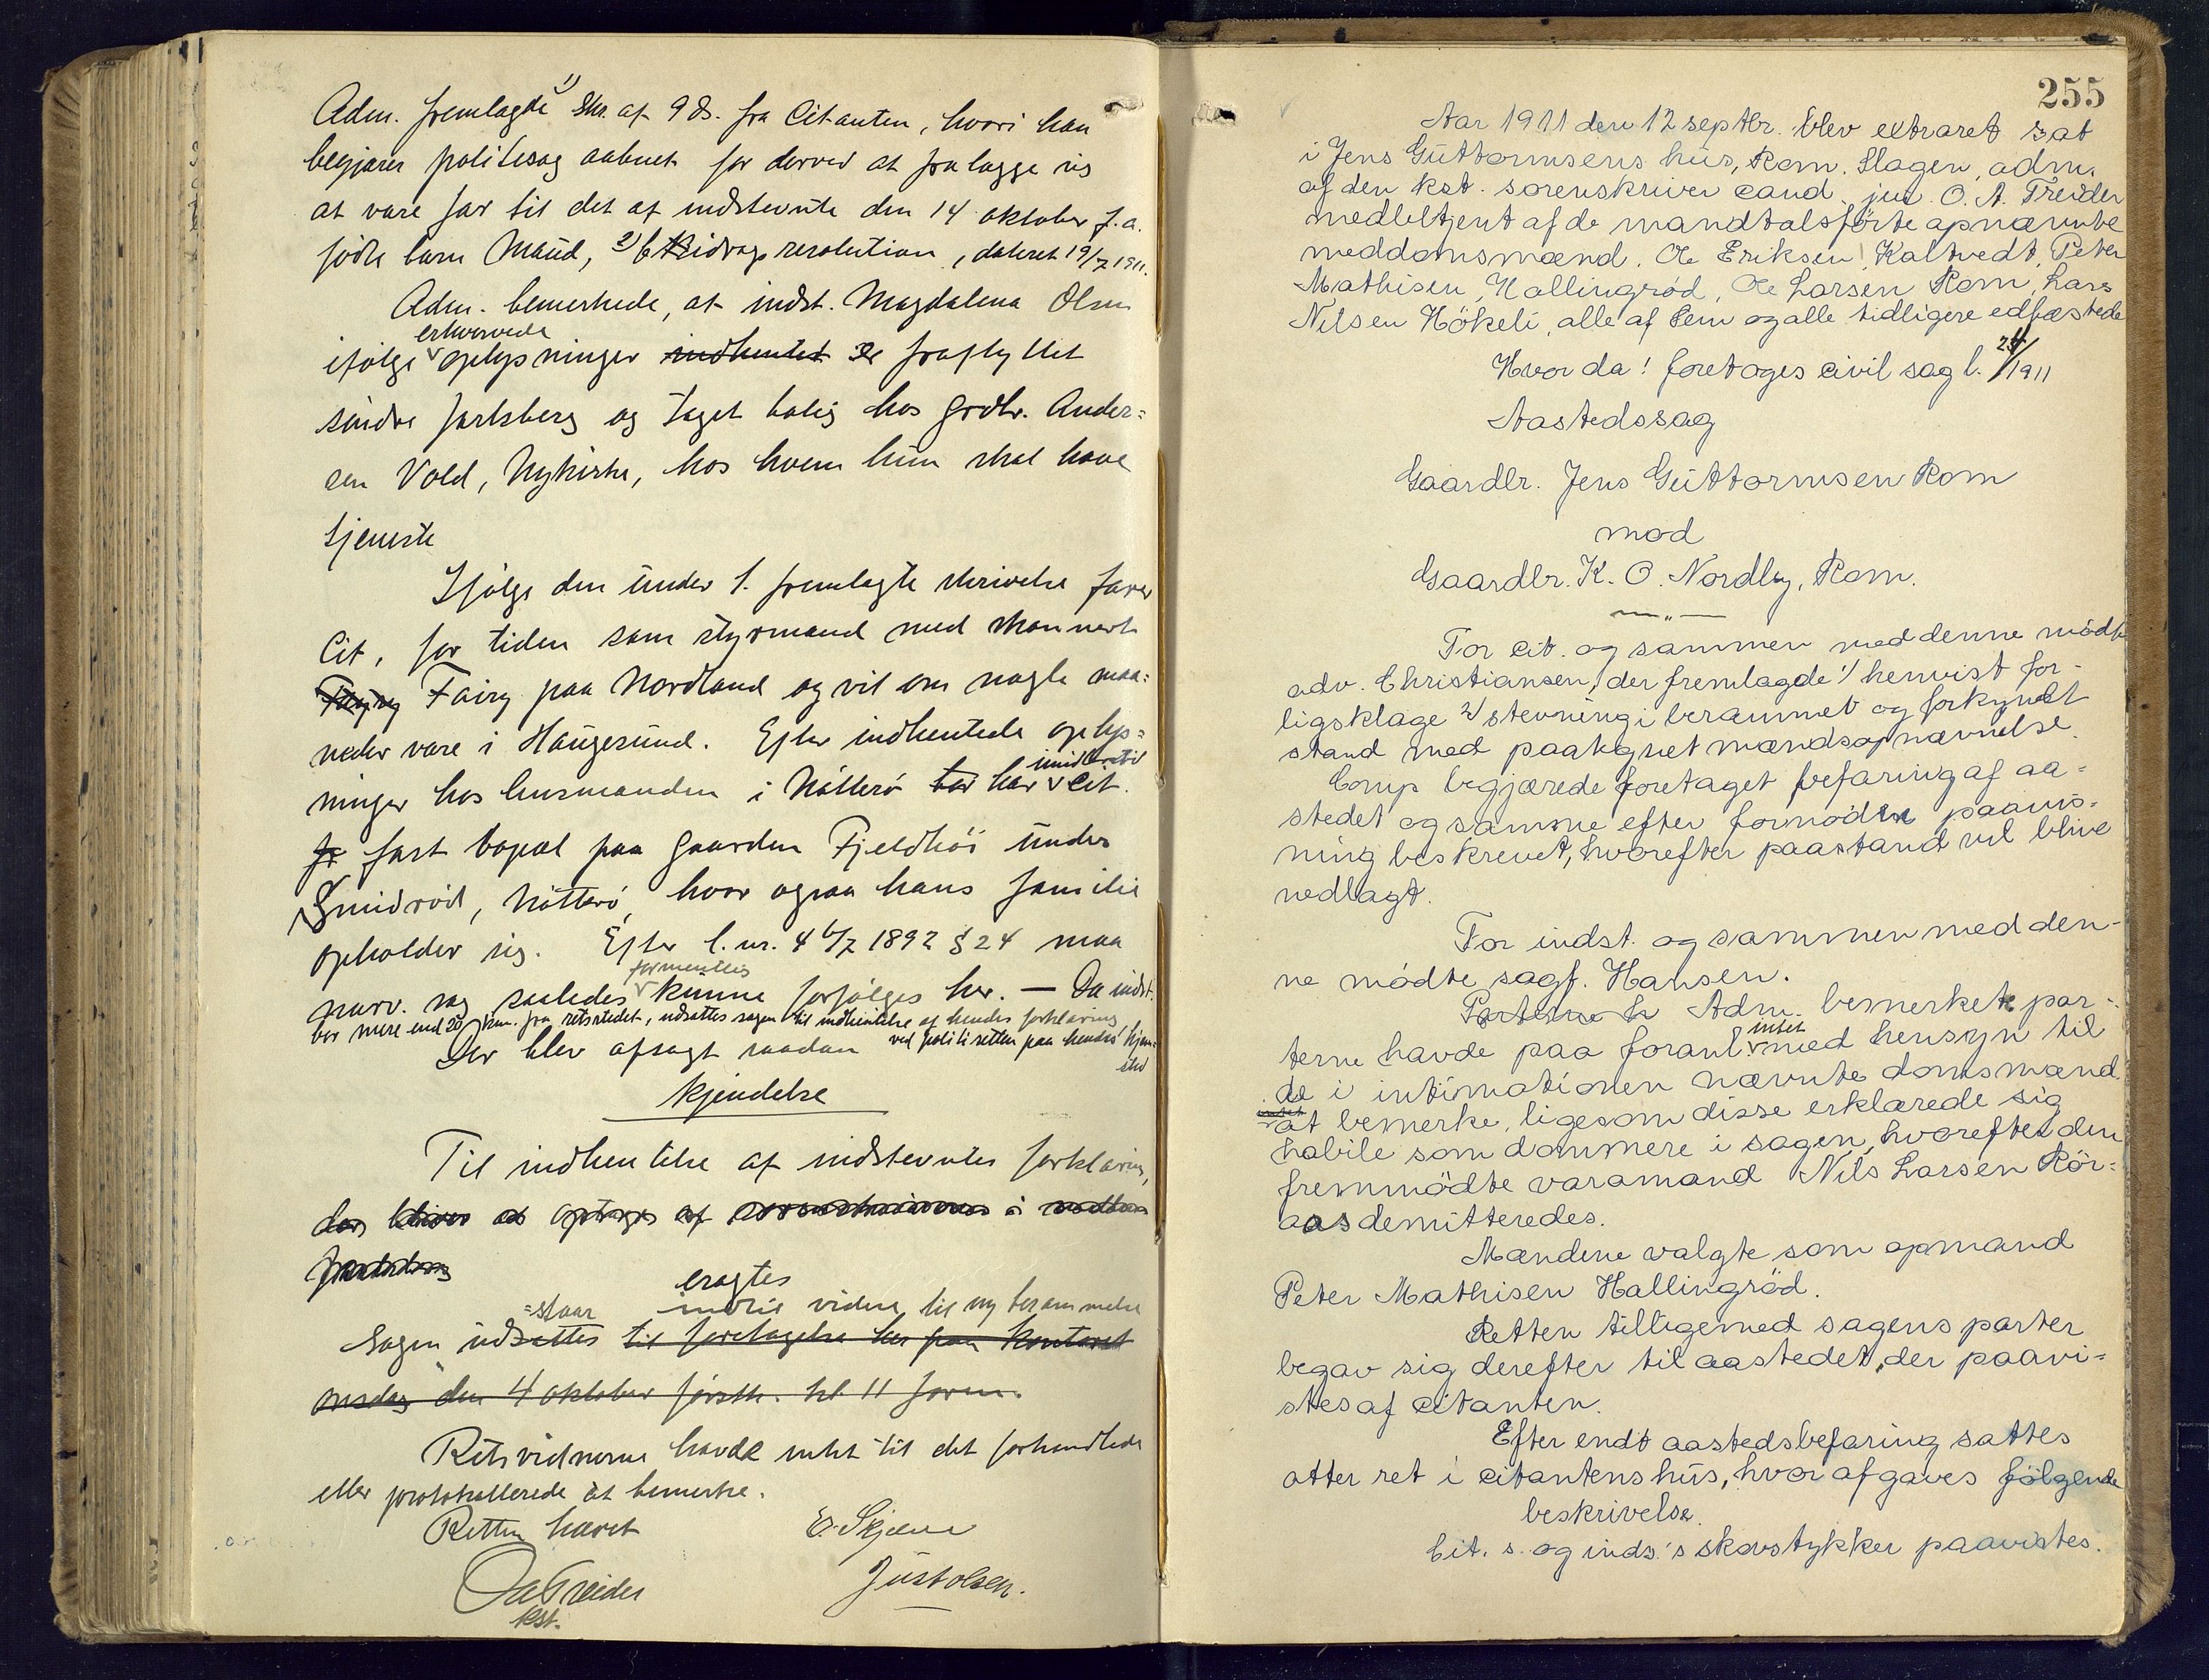 Adm. fremlagde 1) Skr. af 9 ds. fra Citanten, hvori han
begjærer politisag aabnet for derved at fralægge sig
at være far til det af indstevnte den 14 oktober f.a.
fødte barn Maud, 2) bidragsresolution, dateret 19/7 1911.
Adm. bemerkede, at indst. Magdalena Olsen
ifølge erhvervede oplysninger indhentet er fraflyttet
søndre Jarlsberg og taget bolig hos Grdbr. Ander=
sen Vold, Nykirke, hos hvem hun skal have
tjeneste
Ifølge den under 1. fremlagte skrivelse farer
Cit, for tiden som styrmand med skonnert
Fairy paa Nordland og vil om nogle maa=
neder være i Haugesund. Efter indhentede oplys=
ninger hos lensmanden i Nøtterø har imidlertid cit.
fast bopæl paa gaarden Fjeldhøi under
Smidrød, Nøtterø, hvor ogsaa hans familie
opholder sig. Efter l. nr. 4 6/7 1892 § 24 maa
nærv. sag saaledes formentlig kunne forfølges her. — Da indst.
bor mere end 20 km. fra retsstedet, udsattes sagen til indhentelse af hendes forklaring
ved politiretten paa hendes hjem-
sted
Der blev afsagt saadan
Kjendelse
Til indhentelse af indstevntes forklaring,
der bliver at optages af sorenskriveren i nordre
Jarlsberg
eragtes
=staar indtil videre, til ny berammelse
Sagen udsættes til foretagelse her paa kontoret
onsdag den 4 oktober førstk. kl 11 form.
Retsvidnerne havde intet til det forhandlede
eller protokollerede at bemerke.
Retten hævet
E. Skjæve
OATreider
Just Olsen.
kst.
255
Aar 1911 den 12 septbr. blev extraret sat
i Jens Guttormsens hus, Rom, Slagen, adm.
af den kst. sorenskriver cand. jur. O. A. Treider
medbetjent af de mandtalsførte opnævnte
meddomsmænd. Ole Eriksen Kaltvedt, Peter
Mathisen, Hallingrød, Ole Larsen Rom, Lars
Nilsen Hökeli, alle af Sem og alle tidligere edfæstede
Hvor da! foretoges civil sag l. 25/1911
Aastedssag
Gaardbr. Jens Guttormsen Rom
mod
Gaardbr. K. O. Nordby, Rom.
—„—
For cit. og sammen med denne mødte
adv. Christiansen, der fremlagde 1/ henvist for-
ligsklage 2/ stevning i berammet og forkyndt
stand med paategnet mændsopnævnelse.
Comp begjærede foretaget befaring af aa=
stedet og samme efter fornøden paavis=
ning beskrevet, hvorefter paastand vil blive
nedlagt.
For indst. og sammen med den-
ne mødte sagf. Hansen.
Parterne h Adm. bemerkete par-
terne havde paa foranl. intet med hensyn til
de i intimationen nævnte domsmænd
intet
at bemerke, ligesom disse erklærede sig
habile som dommere i sagen, hvorefter den
fremmødte varamand Nils Larsen Rör=
aas demitteredes.
Mændene valgte som opmand
Peter Mathisen Hallingrød.
Retten tilligemed sagens parter
begav sig derefter til aastedet, der paavi=
stes af citanten.
Efter endt aastedsbefaring sattes
atter ret i citantens hus, hvor afgaves følgende
beskrivelse.
Cit. s. og inds.'s skovstykker paavistes.